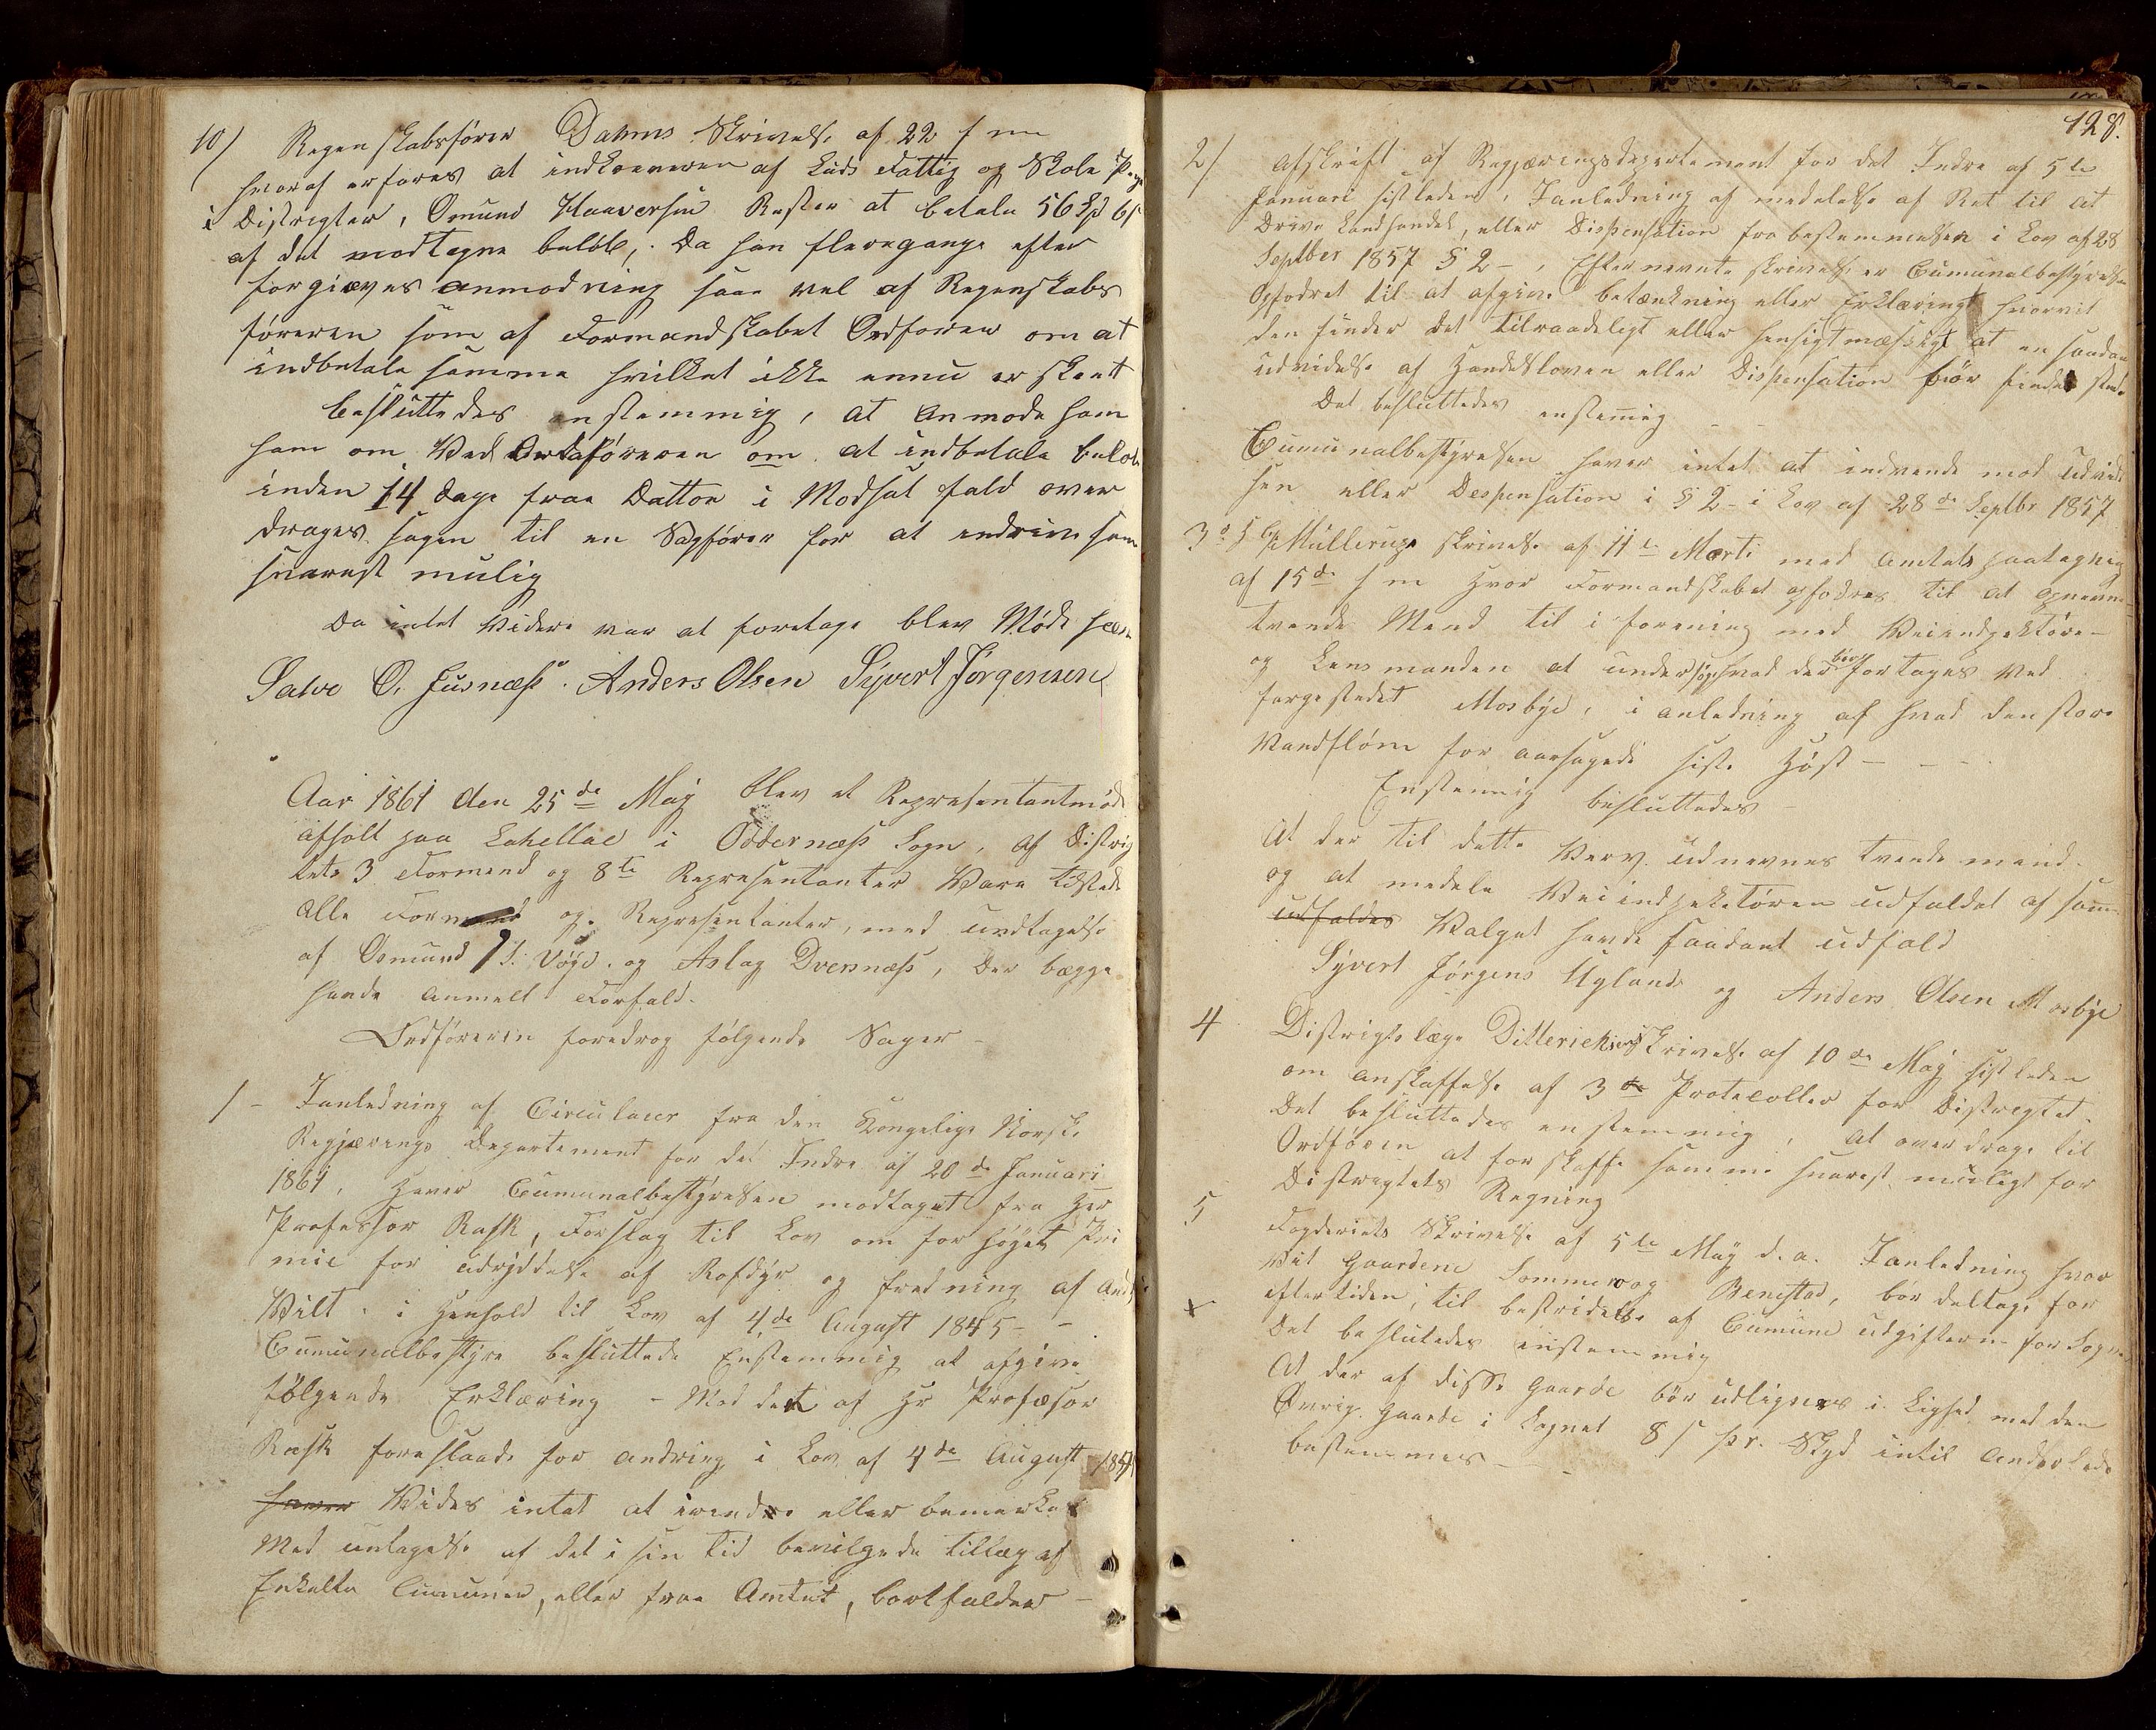 10/ Regenskabsfører Dahms Skrivelse af 22 f m
hvoraf erfares at indkræveren af Luds Fattig og Skole
i Distrigter, Omund Haaversen Rester at betale 56 Spd
af det modtagne beløb, Da han fleregange efter
forgiæves anmodning saa vel af Regenskabs
føreren som af Formandskabet Ordføren om at
indbetale samme hvilket ikke ennu er skeet
besluttedes enstemmig, at anmode ham
ham om Ved Ordføreren om at indbetale beløb
inden 14 dage fraa Datto i Modsat fald over
drages sagen til en Sagfører for at indrive som
snarest mulig
Da intet Videre var at foretage blev Møde hæ
Salve O. Lusnæss. Anders Olsen Syvert Jørgensen
Aar 1861 den 25de May blev et Representantmøde
afholt paa Lahellae i Oddernæss Sogn, af Distrig
tets 3 Formend og 8te Representanter Vare tilstede
alle Formend og Representanter, med undtagelse
af Osmund S. Vøge og Aslag Dversnæss, Der begge
havde anmelt Forfald.
Ordføreren foredrog følgende Sager -
1 - Ianledning af Circulaer fra den Kongelige Norske
Regjærings Departement for det Indre af 20de Januari
1861, Haver Cumunalbestyrelsen modtaget fra Her
Professor Rask, Forslag til Lov om for høyet Pri
mie for udryddelse af Rofdyr og fredning af andet
Vilt i Henhold til Lov af 4de August 1845 - -
Cumunalbestyre besluttede Enstemmig at afgive
følgende Erklæring - Mod det af Hr Profæsor
Rask foreslaade for andring i Lov af 4de August 1845
haver Vides intet at invende eller bemerke
Med untagelse af det i sin tid bevilgede tillæg af
Enkelte Cumuner, eller fraa Amtet, bortfalder -
128.
2/ Afskrift af Regjæringsdepartement for det Indre af 5te
Januari sistleden, Ianledning af medelelse af Ret til at
Drive Landhandel, eller Dispensation fra bestemmelsen i Lov af 28
Septber 1857 § 2 - , Efter nevnte skrivelse er Cumunalbestyrelsen
Opfodret til at afgive betænkning eller Erklæring hvorvit
den finder det tilraadeligt eller hensigtmæssigt at en saadan
udvidelse af Handelsloven eller Dispensation bør finde sted
Det besluttedes enstemig - -
Cumunalbestyrelsen haver intet at indvende mod Udvidel
sen eller Despensation i § 2 - i Lov af 28de Septbr 1857
3 skrivelse af 11te Marti med Amtets paategning
af 15de f m Hvor Formandskabet opfodres til at opnevne
tvende Mend til i forening med Veiindspektøre -
og Lensmanden at undersøge hvad der bør fortages Ved
fergestedet Mosbye, i anledning af hvad den store
Vandflom for aarsagede siste Høst - - -
Enstemig besluttedes -
At der til dette Verv. udnevnes tvende mend
og at medele Veiindspektøren udfaldet af samme
udfaldes Valget havde saadant udfald
Syvert Jørgens Uglund og Anders Olsen Mosbye
4 Distrigtslæge Ditterichsens Skrivelse af 10de May sistleden
om anskaffelse af 3de Protecoller for Distrigtet.
Det besluttedes enstemmig, at over drage til
Ordføren at for skaffe samme snarest muligt for
Distrigtets Regning
5 Fogderiets Skrivelse af 5te May d. a. Ianledning hvor
vit Gaardene Sommero og Benestad, bør deltage for
eftertiden, til bestridelse af Cumune udgifterne for Sogne
Det besluttedes enstemmig
At der af disse Gaarde bør udlignes i Lighed med den
Øvrige Gaarde i Sognet 8 s pr. Skyld intil Anderledes
bestemmes - -